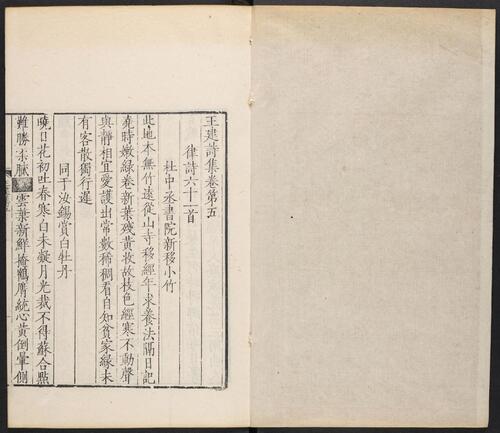 王建詩集卷第五
律詩六十一首
杜中丞書院新移小竹
此地本無竹遠從山寺移經年求養法隔日記
澆時嫩綠卷新葉殘黃收故枝色經寒不動聲
與靜相宜愛護出常數稀稠看自知貧家緣未
有客散獨行遲
同于汝錫賞白牡丹
曉日花初吐春寒白未凝月光裁不得蘇合點
難勝柔膩雲葉新鮮掩鶴膺統心黃倒暈側